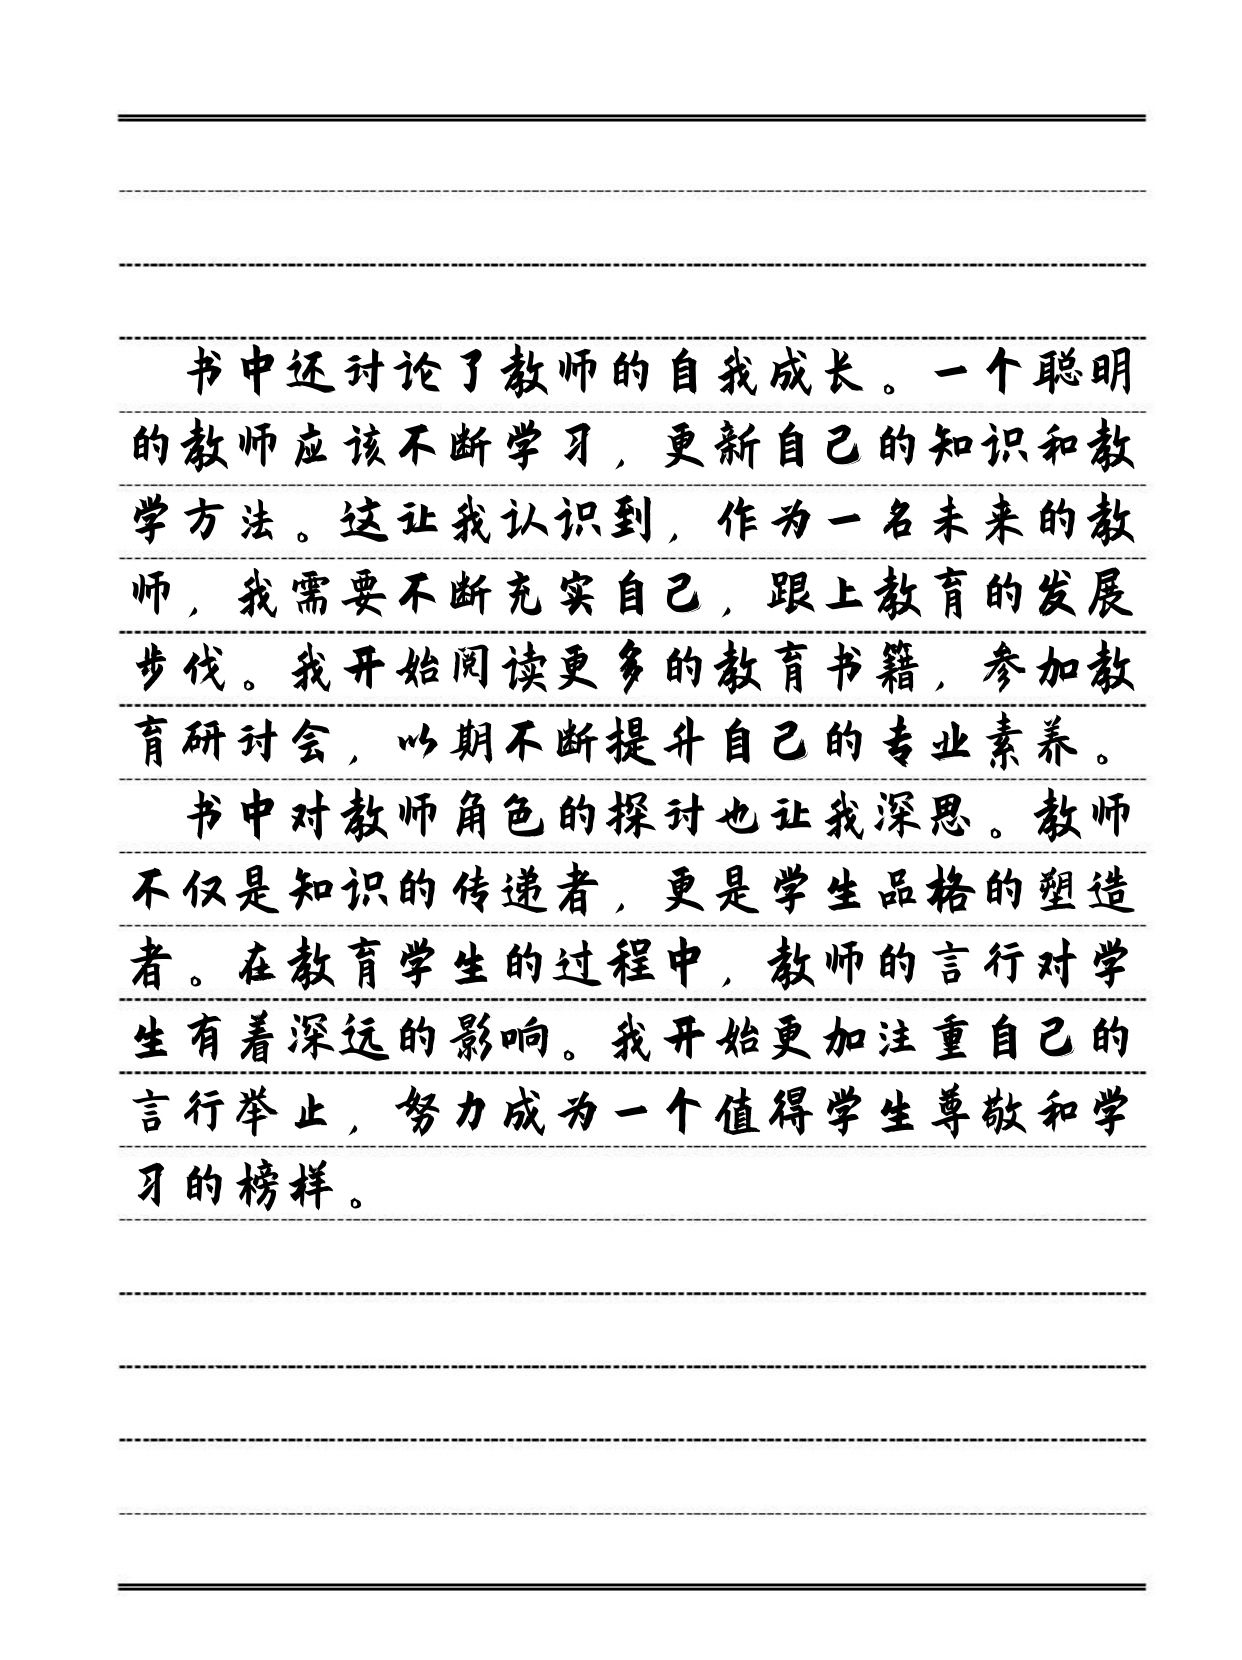 书中还讨论了教师的自我成长。一个聪明
的教师应该不断学习，更新自己的知识和教
学方法。这让我认识到，作为一名未来的教
师，我需要不断充实自己，跟上教育的发展
步伐。我开始阅读更多的教育书籍，参加教
育研讨会，以期不断提升自己的专业素养。
书中对教师角色的探讨也让我深思。教师
不仅是知识的传递者，更是学生品格的塑造
者。在教育学生的过程中，教师的言行对学
生有着深远的影响。我开始更加注重自己的
言行举止，努力成为一个值得学生尊敬和学
习的榜样。